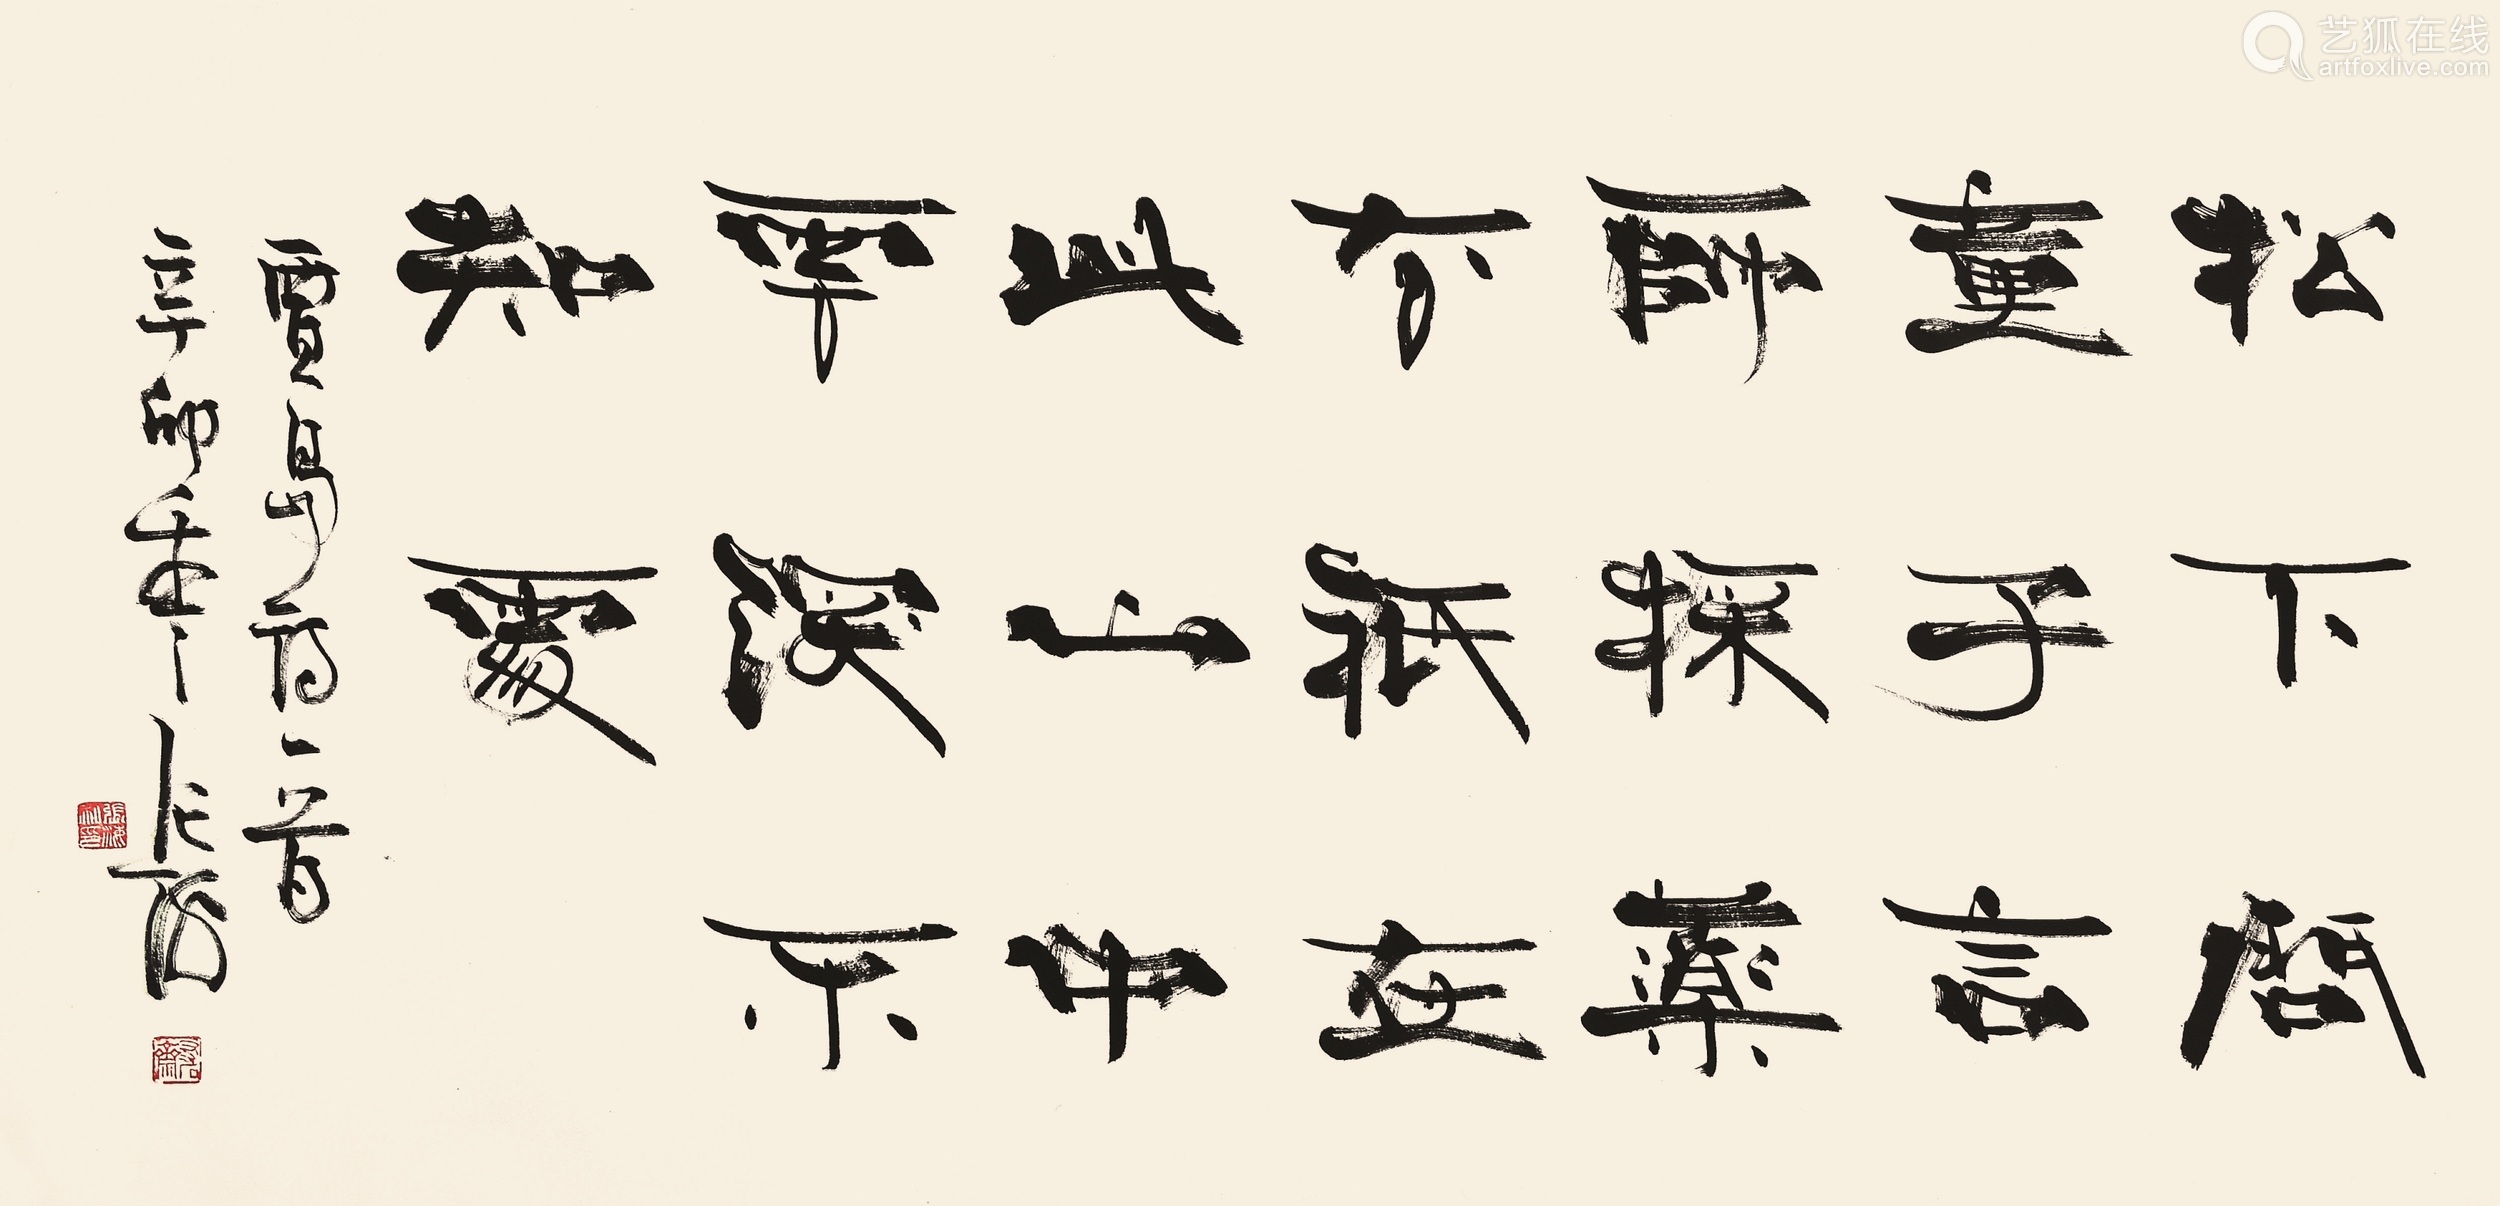 艺狐在线
artfoxlive.com
松下問
童子言
師採藥
去祇在
此山中
雲深不
知處
賈島詩一首
辛卯 張海
張海